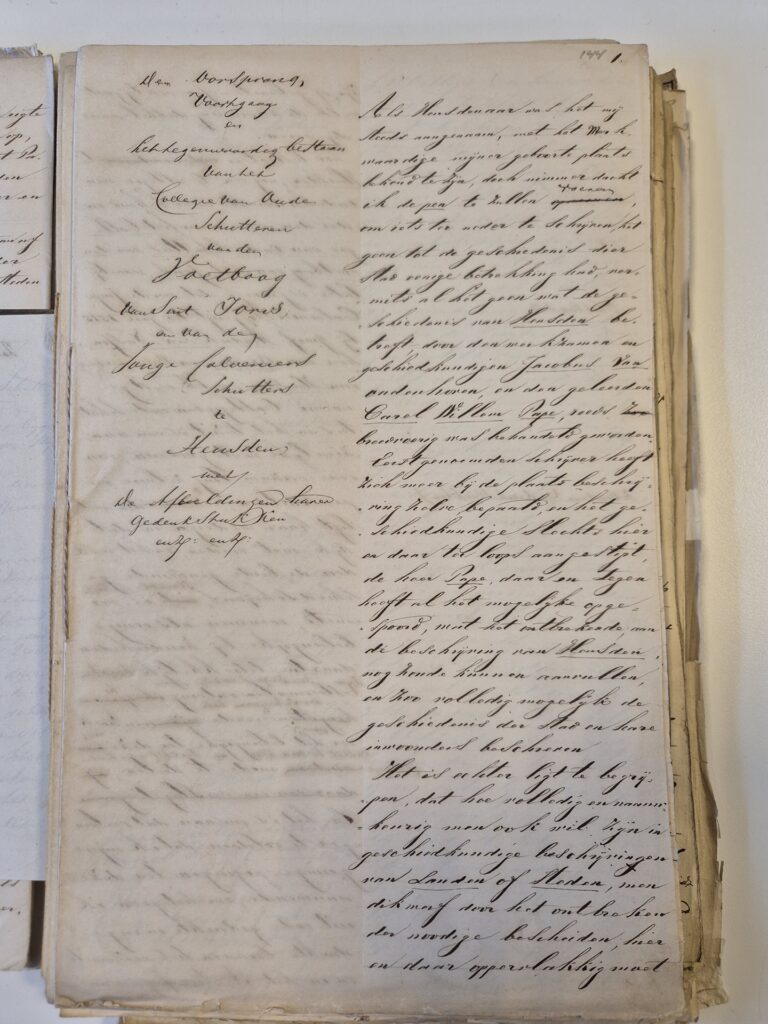 144 1.
Den Oorsprong,
Voortgang
en
het tegenwoordig bestaan
van het
Collegie van Oude
Schutteren
van den
Voetboog
van Sint Joris,
en van den
Jonge Colveniers
Schutters
te
Heusden,
met
De Afbeeldingen hunner
Gedenkstukken
enz: enz:
Als Heusdenaar was het mij
steeds aangenaam, met het Merk-
waardige mijner geboorte plaats
bekend te zijn, doch nimmer dacht
ik de pen te zullen voeren
om iets ter neder te schrijven, het
geen tot de geschiedenis dier
Stad eenige betrekking had, ver-
mits al het geen wat de ge-
-schiedenis van Heusden be-
treft door den werkzamen en
geschiedkundigen Jacobus Van
oudenhoven, en den geleerden
Carel Willem Pape, reeds
breedvoerig was behandeld geworden.
Eerstgenoemden schrijver heeft
zich meer bij de plaats beschrij-
-ving zelve bepaald, en het ge-
-schiedkundige slechts hier
en daar ter loops aangestipt,
de heer Pape, daar en tegen
heeft al het mogelijke opge-
-spoord, wat het ontbrekende, aan
de beschrijving van Heusden,
nog konde kunnen aanvullen,
en zoo volledig mogelijk de
geschiedenis der Stad en hare
inwoonders beschreven
Het is echter ligt te begrij-
-pen, dat hoe volledig en naauw-
-keurig men ook wil zijn in
geschiedkundige beschrijvingen
van Landen of Steden, men
dikwerf door het ontbreken
der noodige bescheiden, hier
en daar oppervlakkig moet